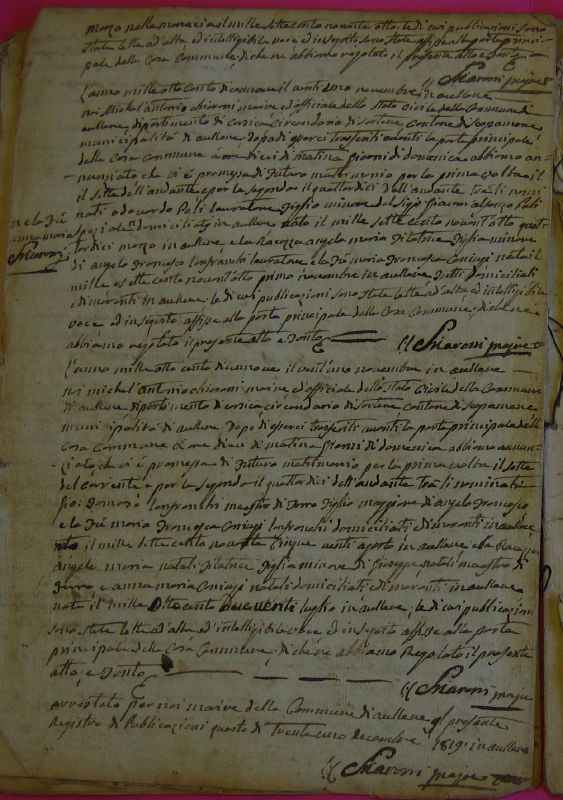 marzo nella monacia il mille sette cento novanta otto le di cui publicazioni sono
state lette ad alta ed intelligibile voce ed in seguito sono state affisse alla porta princi-
pale della Casa Commune di che ne abbiamo regolato il presente atto e
Chiaroni maire
L'anno mille otto cento il vent'uno novembre in aullene
noi Michel'antonio chiaroni maire ed officiale dello Stato Civile della Commune di
aullene dipartimento di corsica Circondario di Sartene Cantone di Scopamene
municipalità di aullene dopo di esserci trasferiti avanti la porta principale
della Casa Commune à ore dieci di matina giorni di domenica abbiamo an-
nunciato che vi è promessa di futuro matrimonio per la prima volta il
il sette dell'andante e per la segonda il quattordici dell'andante tra li nomi
nati odoardo Poli lavoratore figlio minore del Poli
e la fù
anna maria
Chiaroni
domiciliati in aullene nato il mille sette cento novant'otto quat-
tordici marzo in aullene e la Ragazza angela maria filatrice figlia minore
di angelo francesco lanfranchi lavoratore e la fù maria francesca Coniugi nata il
mille e sette cento novant'otto primo novembre in aullene tutti domiciliati
e dimoranti in aullene le di cui publicazioni sono state lette ad alta ed intelligibile
voce ed in seguito affisse alla porta principale della Casa Commune, di che ne
abbiamo regolato il presente atto e
Chiaroni maire
L'anno mille otto cento il vent'uno novembre in aullene
noi michel'Antonio chiaroni maire ed officiale dello Stato Civile della Commune
di aullene dipartimento di corsica circondario di Sartene Cantone di Scopamene
municipalità di aullene Dopo di esserci trasferiti avanti la porta principale della
Casa Commune à ore dieci di matina giorni di domenica abbiamo annun-
ciato che vi è promessa di futuro matrimonio per la prima volta il sette
del corrente e per la segonda il quattordici dell'andante tra li nominati
lanfranchi maestro di ferro figlio maggiore di angelo francesco
e la fù maria francesca Coniugi lanfranchi domiciliati e dimoranti in aullene
nato il mille sette cento novanta cinque venti agosto in aullene e la Ragazza
Angela maria natali filatrice figlia minore di Giuseppe natali maestro di
ferro e anna maria Coniugi natali domiciliati e dimoranti in aullene
nata il mille Otto cento venti luglio in aullene, le di cui publicazioni
sono state lette ad alta ed intelligibile voce ed in seguito affisse alla porta
principale della Casa Commune, di che ne abbiamo Regolato il presente
atto e
Chiaroni maire
arrestato per noi maire della Commune di aullene il presente
Registro di Publicazioni questo di trenta uno decembre 1819 in aullene
Chiaroni maire